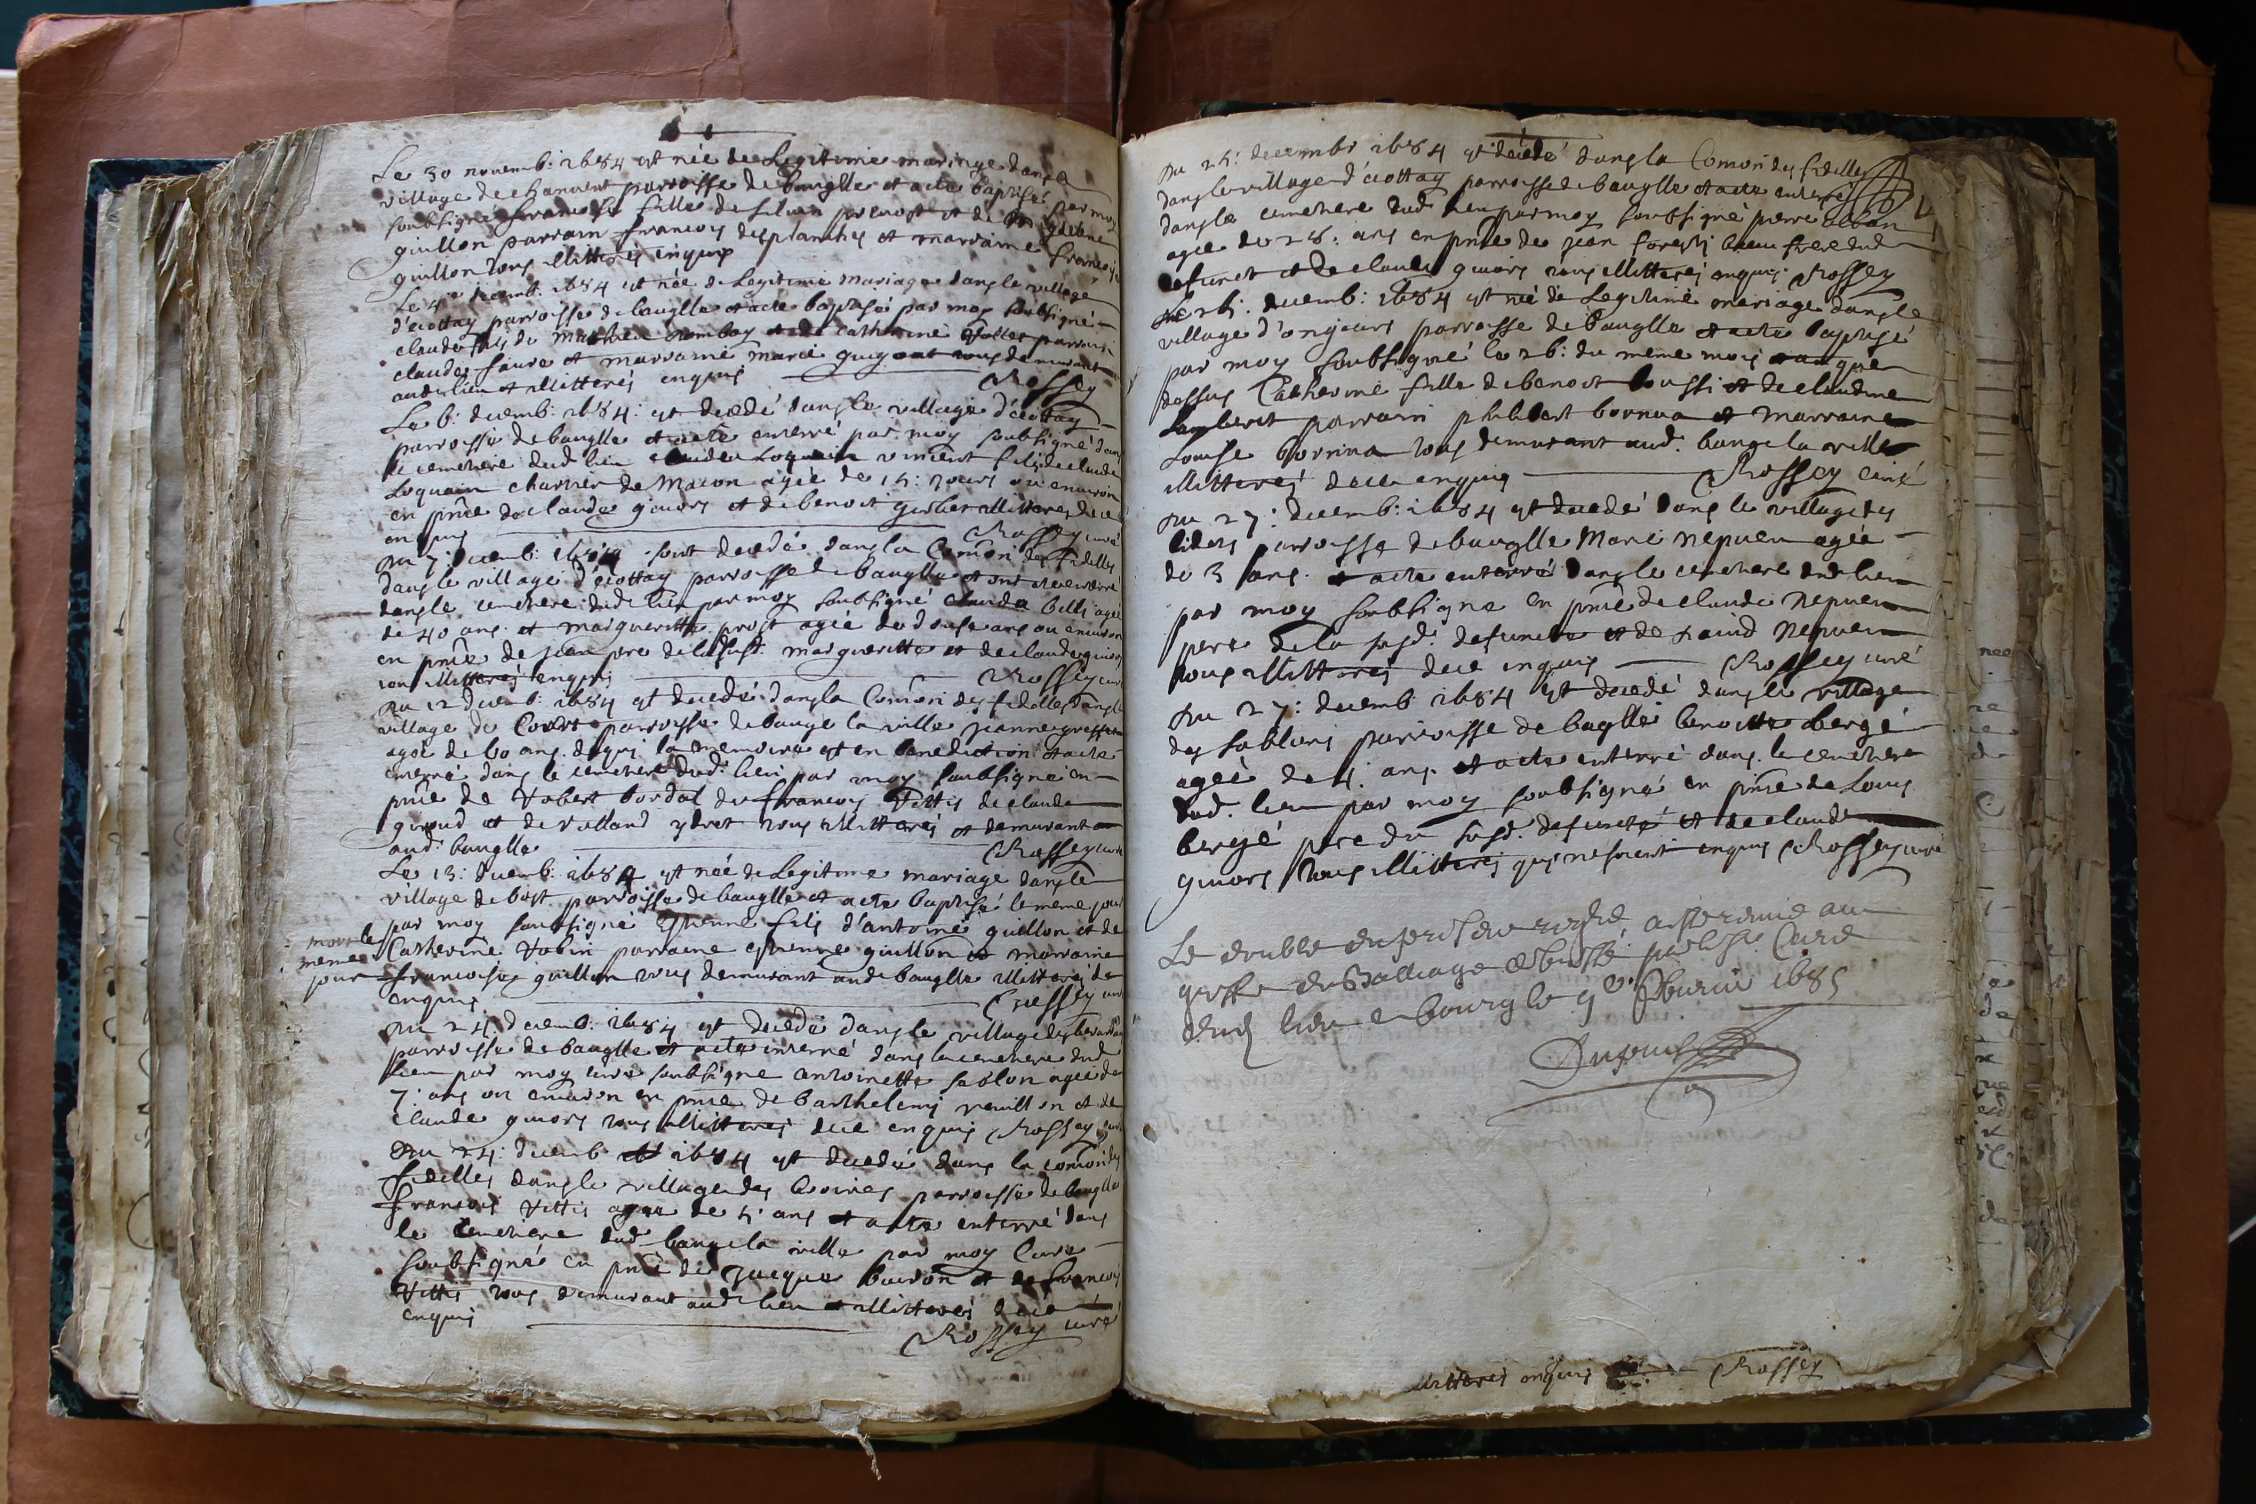 Le 30 novemb: 1684 est née de Legitime mariage dans le
village de chanvent parroisse de bauglle et acte baptisé par moy
soubsigné francoise fille de
guillon parrain francois desplanches et marraine francoise
guillon tous illitterés enquis
Le 4e decemb: 1684 est née de Legitime Mariage dans le village
d'écottay parroisse de bauglle et acte baptisé par moy soubsigné
claude fils de Mathieu et de catherine parrain
claude faure et marraine marie tous demurant
aud. lieu et illitterés enquis Rossey
Le 6: decemb: 1684: est decedé dans le village d'écottay
parroisse de bauglle et acte enterré par moy soubsigné dans
le cemetiere dud. lieu vincent fils de claude
Loquain charrier de Macon agée de 15: jours ou environ
en pnce de claude guiors et de benoit illitterés de ce
enquis Rossey curé
Du 7: decemb: 1684 sont decedé dans la Comōn des fidelles
dans le village d'écottay parroisse de bauglle et ont esté enterré
dans le cemetiere dud. lieu par moy soubsigné claude belli agé
de 40 ans. et margueritte prost agée de douse ans ou environ
en pnce de jean pere de la susd. margueritte et de claude guiors
tous illitterés enquis Rossey curé
Du 12 decemb: 1684 est decedé dans la Comōn des fidelles dans le
village de Cours parroisse de bauge la ville jeanne
agée de 60 ans. de qui la memoire est en benediction et acte
enterré dans le cemetiere dud. lieu par moy soubsigné en
pnce de Robert bordat de francois Vittis de claude
giroud et de tous illitterés et demurant
aud. bauglle Rossey curé
Le 13: decemb: 1684 est née de Legitime mariage dans le
village de bost parroisse de bauglle et acte baptisé le meme jour
par moy soubsigné Estienne fils d'antoine guillon et de
mort le
meme
jour
Catherine Robin parraine estienne guillon et marraine
francoise guillon tous demurant aud. bauglle illitterés de ce
enquis Rossey curé
Du 24 decemb: 1684 est decedé dans le village des
parroisse de bauglle et acte enterré dans le cemetiere dud.
lieu par moy curé soubsigné antoinette sablon agée de
7: ans ou environ en pnce de barthelemy revillon et de
claude guiors tous illitterés de ce enquis Rossey curé
Du 24: decemb 1684 est decedé dans la comōn des
fidelles dans le village des parroisse de bauglle
francois Vittis agée de 5: ans et acte enterré dans
le cemetiere dud. bauge la ville par moy Curé
soubsigné en pnce de Jacque et de francois
Vittis tous demurant aud. lieu et illitterés de ce
enquis
Rossey curé
Du 25: decembr 1684 est decedé dans la Comōn des fidelles
dans le village d'écottay parroisse de bauglle et acte enterré
dans le cemetiere dud. lieu par moy soubsigné pierre alban
agée de 28: ans en pnce de jean forest beau frere dud.
defunct et de claude guiors tous illitterés enquis Rossey
Le 25: decemb: 1684 est née de Legitime mariage dans le
village d'onjours parroisse de bauglle et acte baptisé
par moy soubsigné le 26: du meme mois et an que
dessus Catherine fille de benoit et de claudine
Lambert parrain philibert bornua et marraine
Louise bornua tous demurant aud. bauge la ville
illitterés de ce enquis Rossey curé
Du 27: decemb: 1684 est decedé dans le village des
lides parroisse de bauglle Marie Nepveu agée
de 3 ans. et acte enterré dans le cemetiere dud. lieu
par moy soubsigné en pnce de claude Nepveu
pere de la susd. defuncte et de Nepveu
tous illitterés de ce enquis Rossey curé
Du 27: decemb 1684 est decedé dans le village
des sablons parroisse de bauglle benoitte bergé
agée de 4: ans. et acte enterré dans le cemetiere
dud. lieu par moy soubsigné en pnce de Louis
bergé pere du susd. defuncte et de claude
guiors tous illitterés enquis Rossey curé
Le double du pnt a esté remis au
greffe du Balliage de bresse par le Sr Curé
dud. lieu a bourg le 9e febvrier 1685
illitterés enquis Rossey